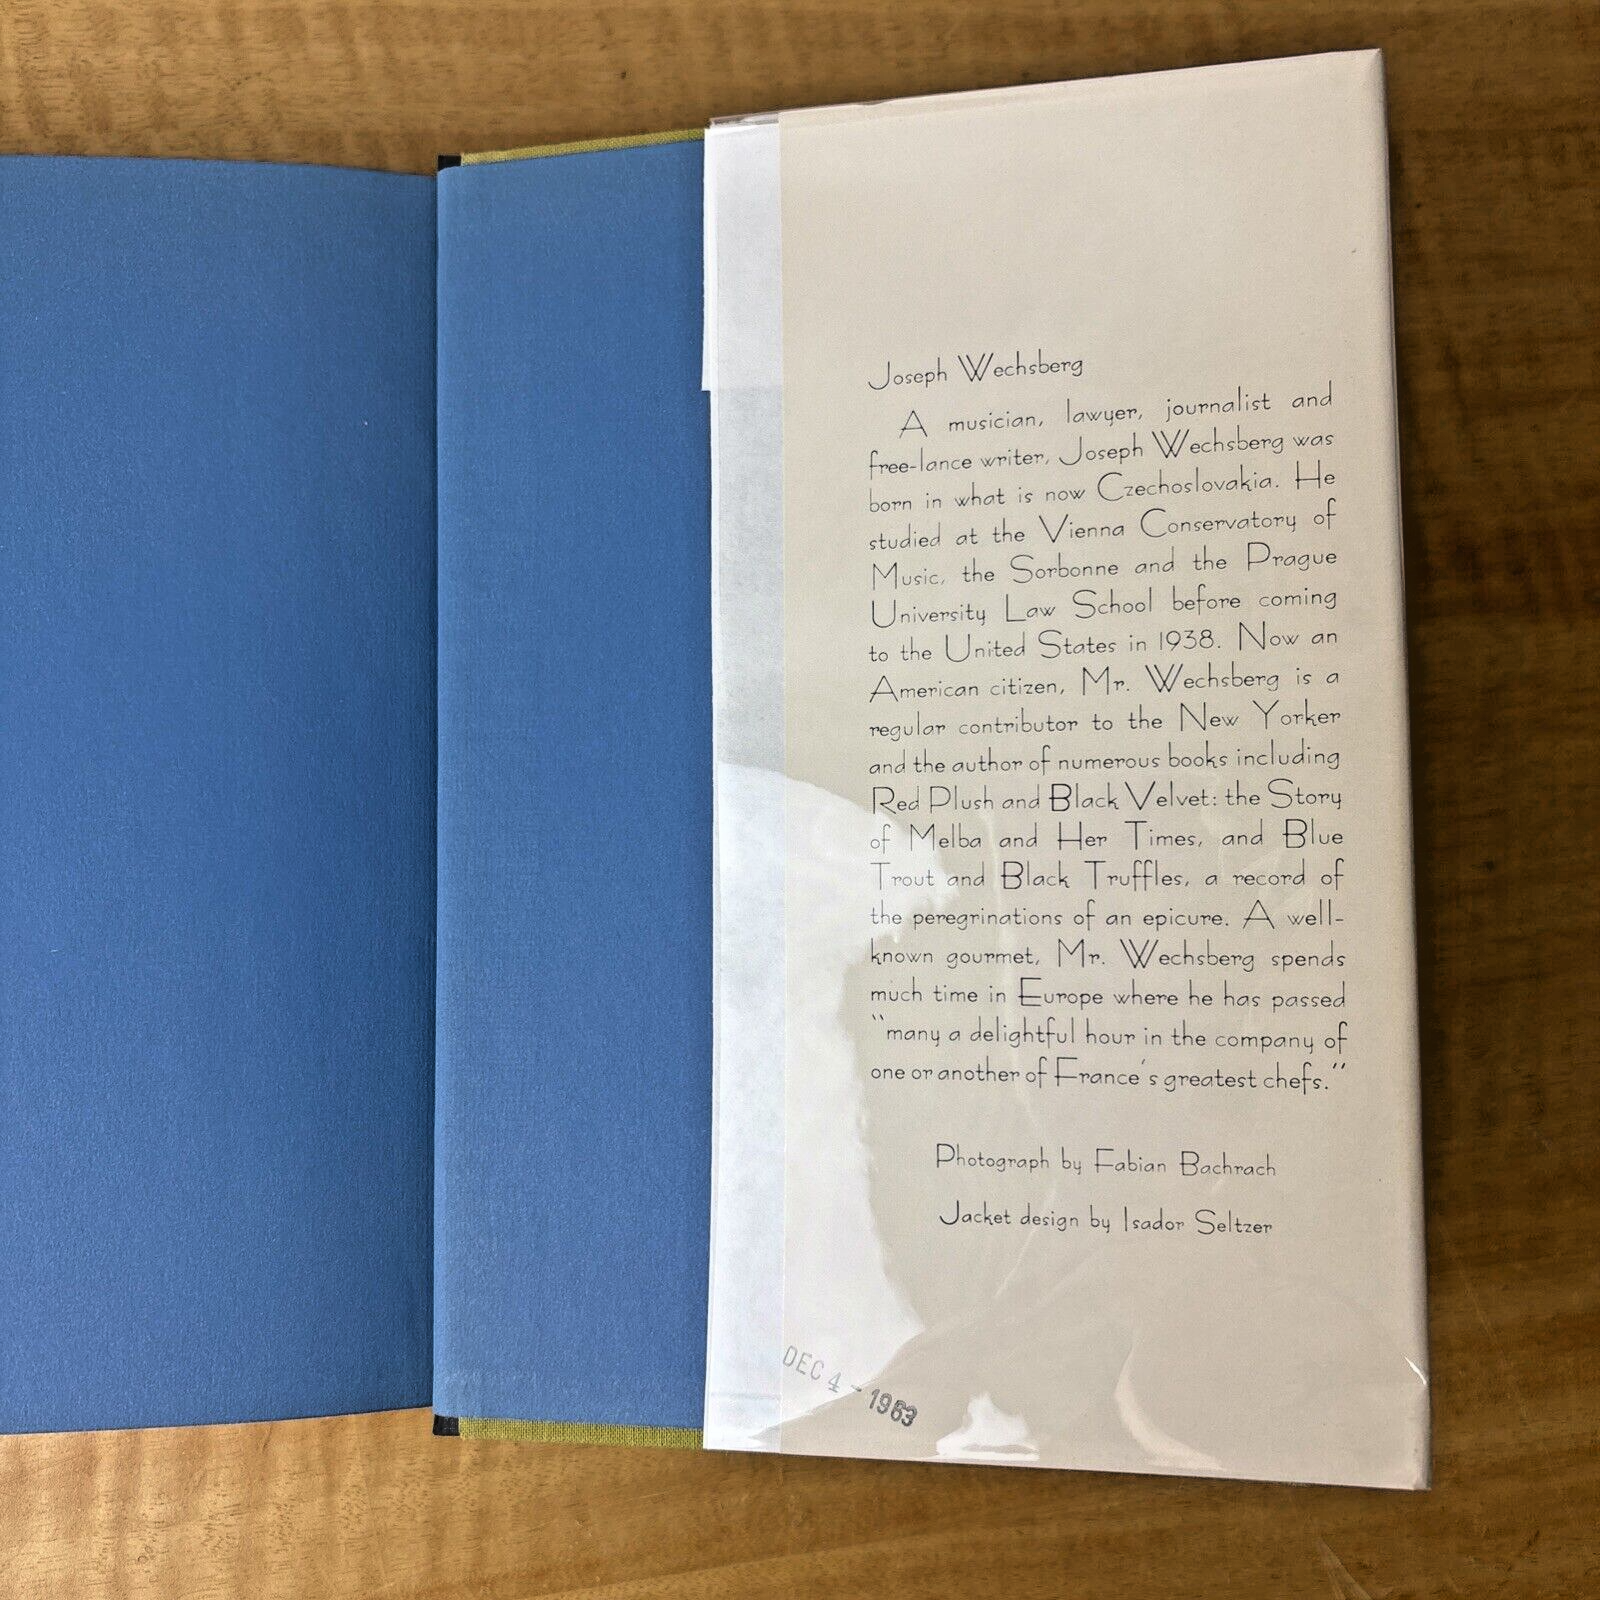 Joseph Wechsberg
A musician, lawyer, journalist and
free-lance writer, Joseph Wechsberg was
born in what is now Czechoslovakia. He
studied at the Vienna Conservatory of
Music, the Sorbonne and the Prague
University Law School before coming
to the United States in 1938. Now an
American citizen, Mr. Wechsberg is a
regular contributor to the New Yorker
and the author of numerous books including
Red Plush and Black Velvet: the Story
of Melba and Her Times, and Blue
Trout and Black Truffles, a record of
the peregrinations of an epicure. A well-
known gourmet, Mr. Wechsberg spends
much time in Europe where he has passed
“many a delightful hour in the company of
one or another of France's greatest chefs.”
Photograph by Fabian Bachrach
Jacket design by Isador Seltzer
DEC 4 - 1963